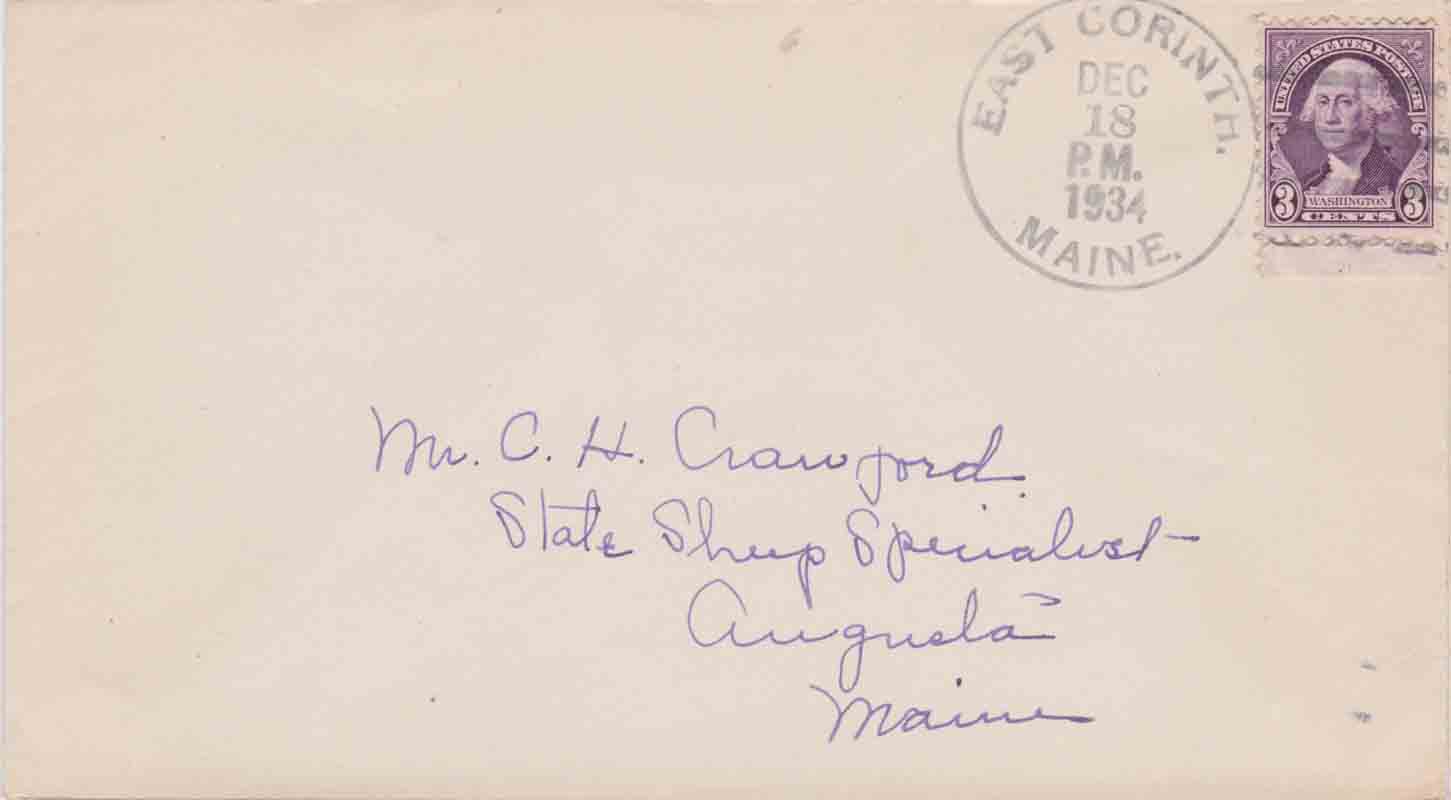 EAST CORINTH.
DEC
18
P.M.
1934
MAINE.
UNITED STATES POSTAGE
3 WASHINGTON 3
CENTS
Mr. C. H. Crawford
State Sheep Specialist
Augusta
Maine